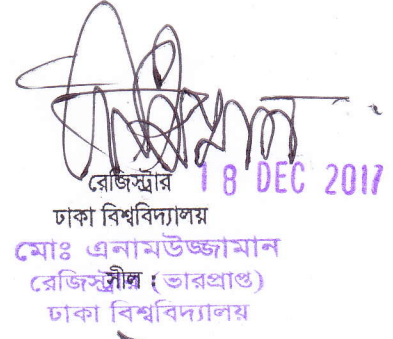 রেজিস্ট্রার 18 DEC 2017
ঢাকা বিশ্ববিদ্যালয়
মোঃ এনামউজ্জামান
রেজিস্ট্রার সীল : (ভারপ্রাপ্ত)
ঢাকা বিশ্ববিদ্যালয়